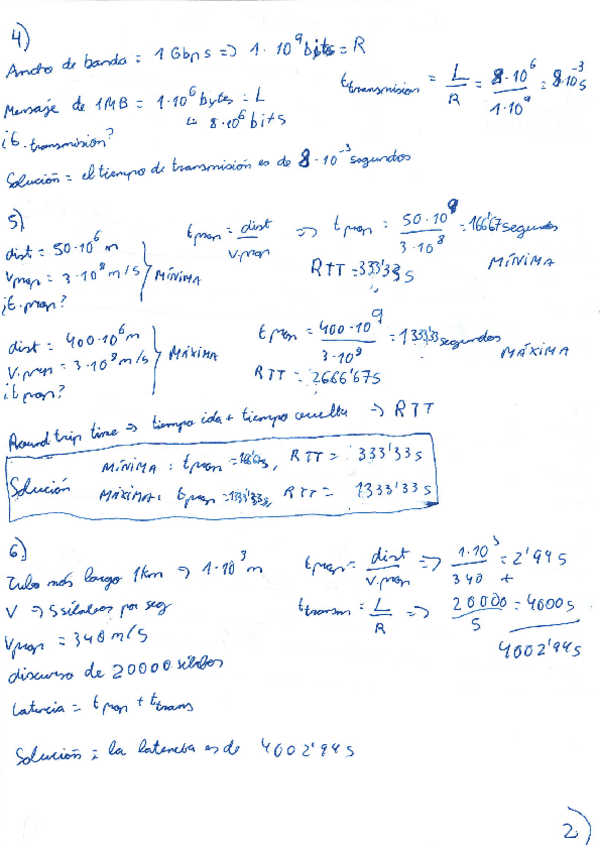 4)
Ancho de banda = 1 Gbps => 1·10^9 bits = R
Mensaje de 1MB = 1·10^6 bytes = L
↳ 8·10^6 bits
t transmision = L/R = 8·10^6 / 1·10^9 = 8·10^-3 s
¿t. transmisión?
Solución = el tiempo de transmisión es de 8·10^-3 segundos
5)
dist = 50·10^6 m
vprop = 3·10^8 m/s } MÍNIMA
¿t. prop?
t prop = dist / v.prop => t prop = 50·10^9 / 3·10^8 = 166'67 segundos
MÍNIMA
RTT = 333'33 s
dist = 400·10^6 m
v.prop = 3·10^8 m/s } MÁXIMA
¿t prop?
t prop = 400·10^9 / 3·10^8 = 1333'33 segundos
MÁXIMA
RTT = 2666'67 s
Round trip time => tiempo ida + tiempo vuelta => RTT
Solución
MÍNIMA: t prop = 166'67s, RTT = 333'33 s
MÁXIMA: t prop = 1333'33s, RTT = 1333'33 s
6)
Tubo más largo 1km => 1·10^3 m
V => 5 sílabas por seg
vprop = 340 m/s
discurso de 20000 sílabas
Latencia = t prop + t trans
t prop = dist / v.prop => 1·10^3 / 340 = 2'94 s
+
t transm = L/R => 20000 / 5 = 4000 s
4002'94 s
Solución: la latencia es de 4002'94 s
2)